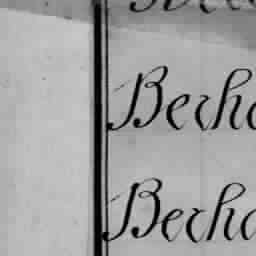 Berha
Berha